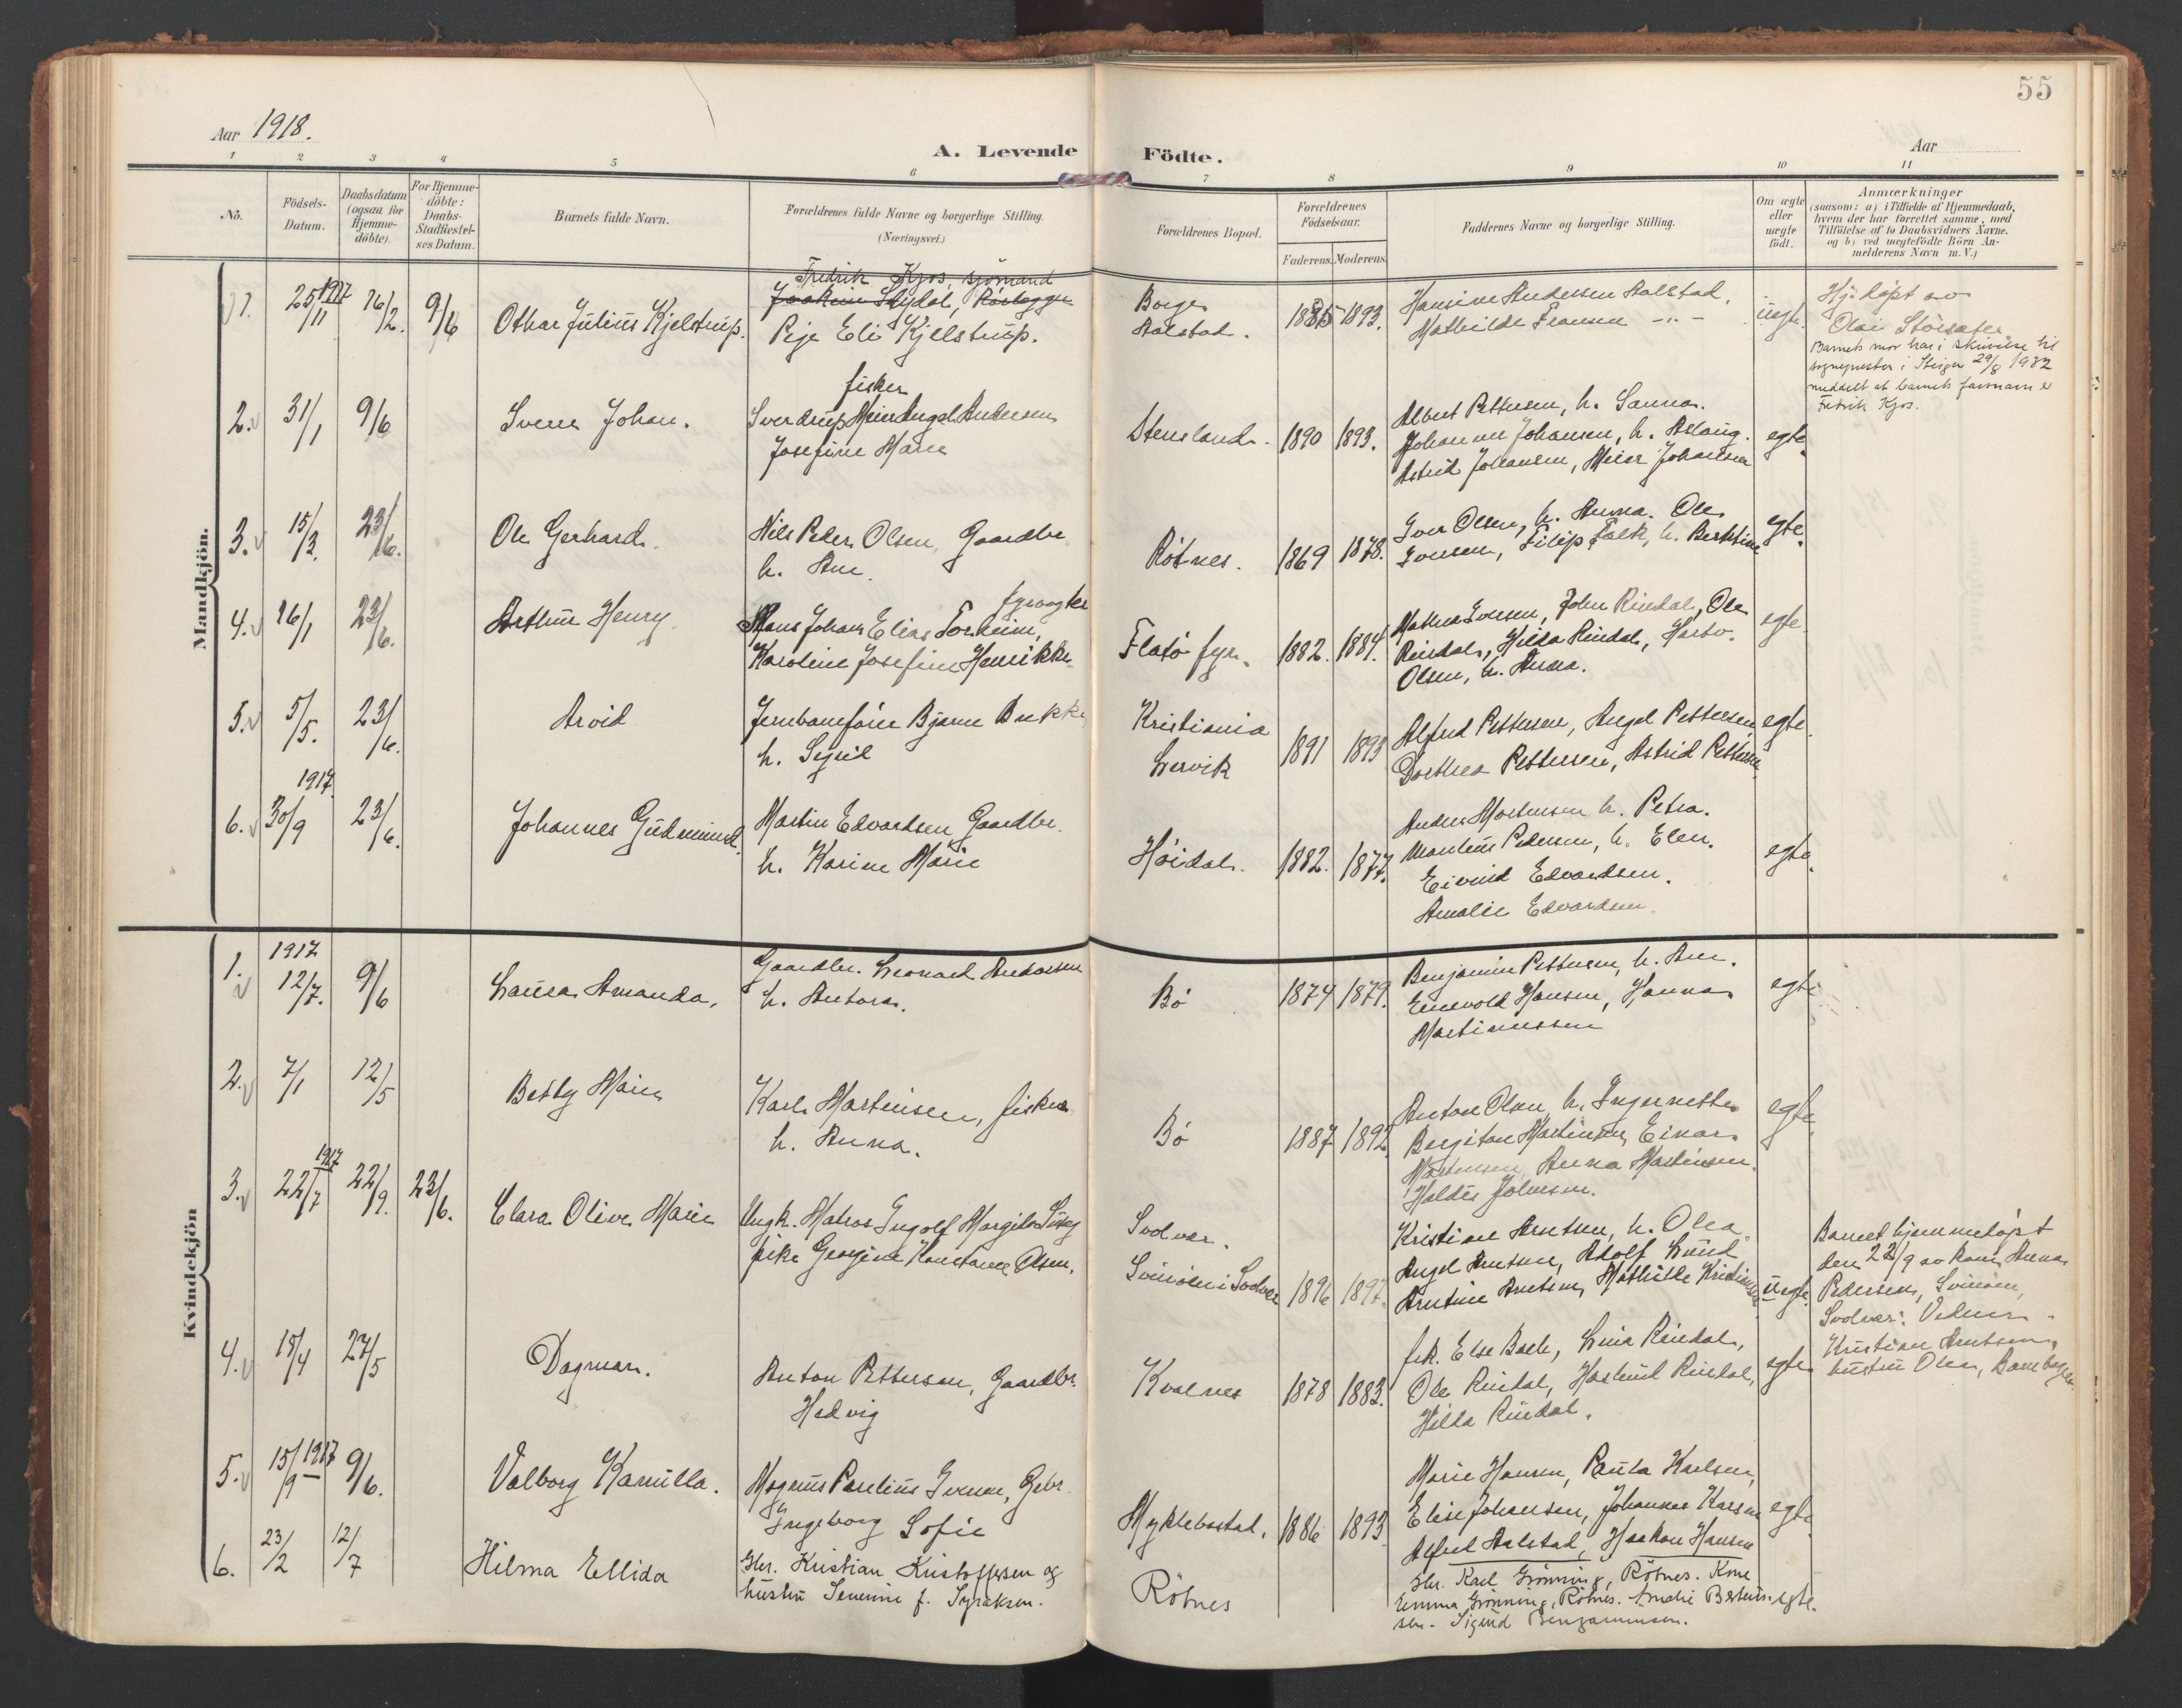 55
Aar 1918.
A. Levende Födte.
Aar
1 2 3 4 5 6 7 8 9 10 11
No.
Födsels-
Datum.
Daabsdatum
(ogsaa for
Hjemme-
döbte).
For Hjemme-
döbte:
Daabs-
Stadfæstel-
ses Datum.
Barnets fulde Navn.
Forældrenes fulde Navne og borgerlige Stilling.
(Næringsvei.)
Forældrenes Bopæl.
Forældrenes
Födselsaar.
Faderens. Moderens.
Faddernes Navne og borgerlige Stilling.
Om ægte
eller
uægte
födt.
Anmærkninger
(saasom: a) i Tilfælde af Hjemmedaab,
hvem der har forrettet samme, med
Tilföielse af to Daabsvidners Navne.
og b) ved uægtefödte Börn An-
melderens Navn m. V.)
Mandkjön.
1. 25/11 1917 16/2. 9/6 Othar Julius Kjelstrup.
Fredrik Kjos, sjömand
Pige Eli Kjelstrup.
Borge
Aalstad.
1885 1893.
Hansine Andersen Aalstad,
Mathilde Framnes -"-
uegte.
Hj. döpt av
Olai
Barnets mor har i skrivelse til
sogneprester i Steigen 29/8 1932
meddelt at barnets farsnavn er
Fredrik Kjos.
2. 31/1 9/6 Sverre Johan.
fisker
Sverdrup Meier Angel Andersen
Josefine Marie
Stensland. 1890 1893.
Albert Pettersen, h. Sanna.
Johannes Johansen, h. Aslaug.
Astrid Johansen, Meier Johansen
egte.
3. 15/3. 23/6. Ole Gerhard.
Nils Peder Olsen, Gaardbr.
h. Ane.
Rötnes. 1869 1878.
Iver Olsen, h. Anna. Ole
Iversen, Filip Falk, h. Berthine
egte.
4. 16/1 23/6. Arthur Henry.
fyrvogter
Hans Johan Elias Torheim,
Karoline Josefine Henrikke
Flatö fyr. 1882. 1884.
Mathea Iversen, John Rindal, Ole
Rindal, Hilda Rindal, Hartv.
Olsen, h. Anna.
egte.
5. 5/5. 23/6. Arvid
Jernbanefører Bjarne Bakke
h. Sigrid
Kristiania
Lervik
1891 1893
Alfred Pettersen, Angel Pettersen
Dorthea Pettersen, Astrid Pettersen
egte.
6. 1917. 30/9 23/6. Johannes Gudmund.
Martin Edvardsen Gaardbr.
h. Karine Marie
Höidal. 1882. 1877.
Anders Mortensen h. Petra.
Montius Pedersen, h. Elen.
Eivind Edvardsen.
Amalie Edvardsen.
egte.
Kvindekjön
1. 1917 12/7. 9/6 Laura Amanda,
Gaardbr. Leonard Andersen
h. Antora.
Bö 1874 1879.
Benjamin Pettersen, h. Ane.
Enevold Hansen, Hanna
Martinussen
egte
2. 7/1 12/5 Betty Marie
Karl Martinsen, fisker
h. Anna.
Bö 1887 1892.
Anton Olsen, h. Ingernette
Bergiton Martinsen, Einar
Martinsen, Anna Martinsen.
Haldis Johnsen.
egte.
3. 1917 22/7 22/9. 23/6. Clara Olive Marie
Ungk. Matros Ingolf Margiton
pike Georgine Konstance Olsen.
Svolvær.
Svinöen i Svolvær 1896 1897.
Kristian Arntsen, h. Olea.
Angel Arntsen, Adolf Lund
Arntine Arntsen, Mathilde Kristiansen
uegte.
Barnet hjemmedöpt
den 22/9 av kone Anna
Pedersen, Svinöen,
Svolvær. Vidner:
Kristian Arntsen,
hustru Olea,
4. 18/4 27/5 Dagmar.
Anton Pettersen, Gaardbr.
Hedvig
Kvalnes 1878 1883.
frk. Else Bach, Lina Rindal,
Ole Rindal, Haslund Rindal,
Hilda Rindal.
egte
5. 15/9 1917 9/6. Valborg Kamilla.
Magnus Paulius Iversen, Gbr.
Ingeborg Sofie
Myklebostad. 1886 1893
Marie Hansen, Paula Karlsen,
Elise Johansen, Johannes Karlsen
Alfred Aalstad, Haakon Hansen
egte.
6. 23/2 12/7 Hilma Ellida
Gbr. Kristian Kristoffersen og
hustru Severine f. Syraksen.
Rötnes
Gbr. Karl Grönning, Rötnes. Kone
Emma Grönning, Rötnes. Amalie Berteus-
sen. Sigurd Benjaminsen.
egte.